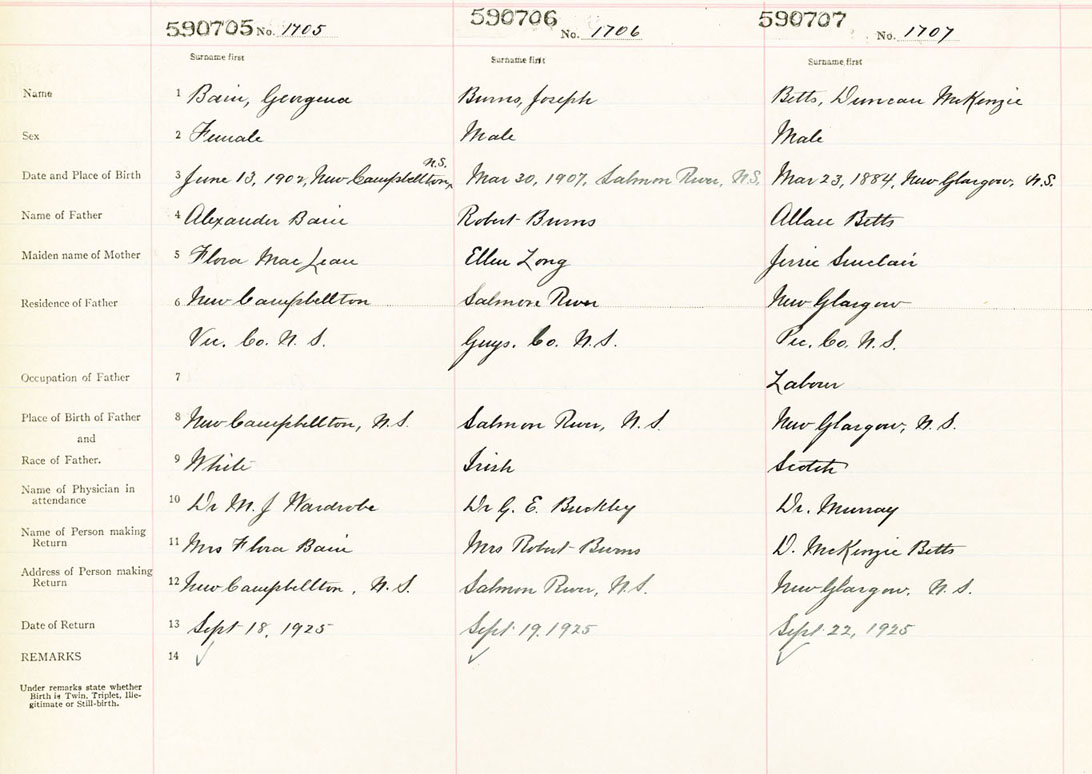 590705 No. 1705 590706 No. 1706 590707 No. 1707
Surname first Surname first Surname first
Name 1 Bain, Georgena Burns, Joseph Betts, Duncan McKenzie
Sex 2 Female Male Male
N.S.
Date and Place of Birth 3 June 13, 1902, New Campbellton, Mar 30, 1907, Salmon River, N.S. Mar 23, 1884, New Glasgow, N.S.
Name of Father 4 Alexander Bain Robert Burns Allan Betts
Maiden name of Mother 5 Flora MacLean Ellen Long Jessie Sinclair
Residence of Father 6 New Campbellton Salmon River New Glasgow
Vic. Co. N.S. Guys. Co. N.S. Pic. Co. N.S.
Occupation of Father 7 Labour
Place of Birth of Father 8 New Campbellton, N.S. Salmon River, N.S. New Glasgow, N.S.
and
Race of Father. 9 White Irish Scotch
Name of Physician in
attendance 10 Dr M. J Wardrobe Dr G. E. Buckley Dr. Murray
Name of Person making
Return 11 Mrs Flora Bain Mrs Robert Burns D. McKenzie Betts
Address of Person making
Return 12 New Campbellton, N.S. Salmon River, N.S. New Glasgow. N.S.
Date of Return 13 Sept 18, 1925 Sept 19, 1925 Sept 22, 1925
REMARKS 14
Under remarks state whether
Birth is Twin, Triplet, Ille-
gitimate or Still-birth.